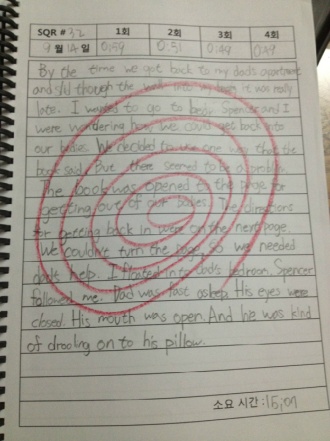 SQR # 32 1회 2회 3회 4회
9월 14일 0:59 0:51 0:49 0:49
By the time we got back to my dad's apartment
and slid though the into it was really
late. I wanted to go to bed. Spencer and I
were wondering how we could get back into
our bodies. We decided to use one way that the
book said. But there seemed to be a problem.
The book was opened to the page for
getting out of our bodies. The directions
for getting back in were on the next page.
We couldn't turn the page, so we needed
help. I floated into Dad's bedroom. Spencer
followed me. Dad was fast asleep. His eyes were
closed. His mouth was open. And he was kind
of drooling on to his pillow.
소요 시간: